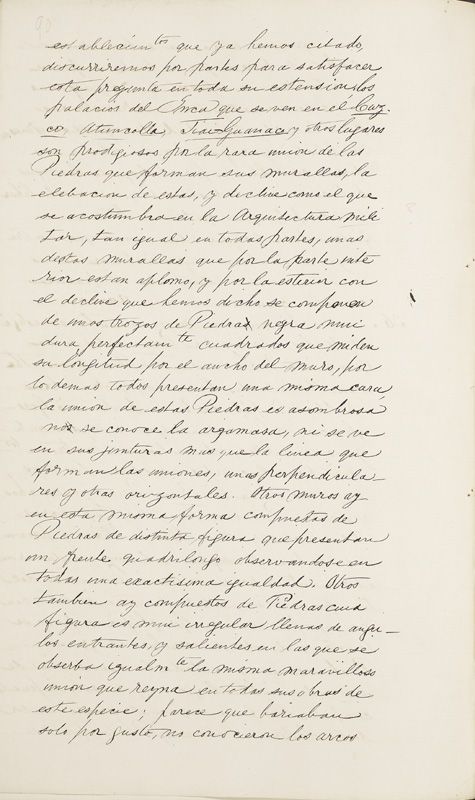 90
establecim.tos que ya hemos citado,
discurriremos por partes para satisfacer
esta pregunta en toda su estension, los
palacios del Ynca que se ven en el Cuz-
co, Atuncolla, Tiai-Guanaco, y otros lugares
son prodigiosos por la rara union de las
Piedras que forman sus murallas, la
elebacion de estas, y declive como el que
se acostumbra en la Arquitectura mili
tar, tan igual en todas partes, unas
destas murallas que por la parte inte
rior estan aplomo, y por la esterior con
el declive que hemos dicho se componen
de unos trozos de Piedra negra mui
dura perfectam.te cuadrados que miden
su longitud por el ancho del muro, por
lo demas todos presentan una misma cara
la union de estas Piedras es asombrosa
no se conoce la argamasa, ni se ve
en sus junturas mas que la linea que
forman las uniones, unas perpendicula
res y otras orizontales. Otros muros ay
en esta misma forma compuestas de
Piedras de distinta figura que presentan
un frente quadrilongo observandose en
todas una exactisima igualdad. Otros
tambien ay compuestos de Piedras cuia
figura es mui irregular llenas de angu-
los entrantes, y salientes en las que se
observa igualm.te la misma maravilloss
union que reyna en todas sus obras de
este especie; parece que bariaban
solo por gusto, no conocieron los arcos